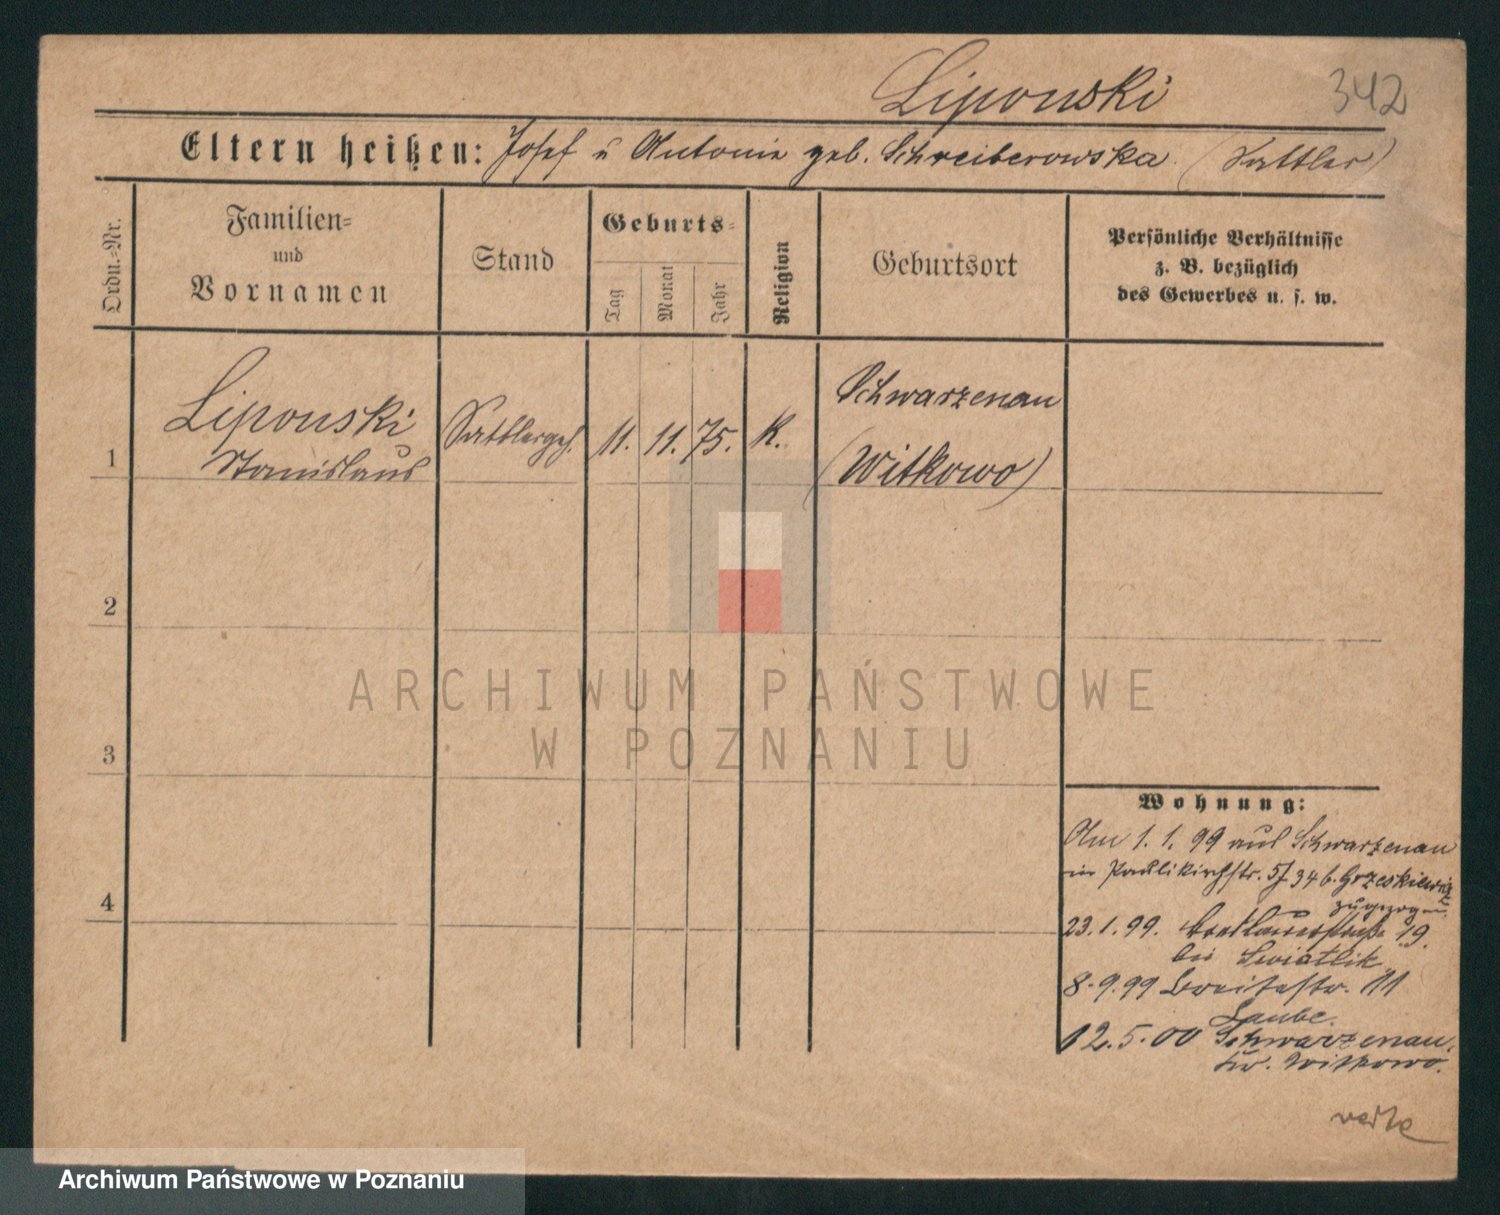 Liponski
342
Eltern heißen: Josef u Antonie geb. Schreiberowska (Sattler)
Ordn.-Nr.
Familien-
und
Vornamen
Stand
Geburts-
Tag
Monat
Jahr
Religion
Geburtsort
Persönliche Verhältnisse
z. B. bezüglich
des Gewerbes u. s. w.
1
Liponski
Stanislaus
Sattlerges.
11.
11.
75.
K.
Schwarzenau
(Witkowo)
2
3
4
ARCHIWUM PAŃSTWOWE
W POZNANIU
Wohnung:
Am 1.1.99 aus Schwarzenau
in Paulikirchstr. 5 b. Grzeskiewicz
zugezogen.
23.1.99. Breslauerstraße 19.
bei Swiatlik
8.9.99 Breitestr. 11
Laube.
12.5.00 Schwarzenau,
Kr. Witkowo.
verte
Archiwum Państwowe w Poznaniu